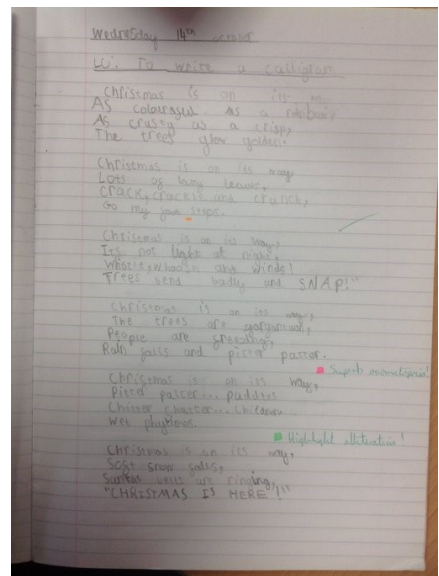 Wednesday 14th October
LO: To write a calligram
Christmas is on its way,
As colourful as a rainbow,
As crusty as a crisp,
The trees glow golden.
Christmas is on its way,
Lots of leaves,
Crack, crackle and crunch,
Go my steps.
Christmas is on its way,
Its not light at night,
and winds!
Trees bend badly and SNAP!"
Christmas is on its way,
The trees are gorgeous,
People are
Rain falls and pitter patter.
Superb onomatopoeia!
Christmas is on its way,
Pitter patter... puddles
Chitter chatter... children
Wet
Highlight alliteration!
Christmas is on its way,
Soft snow falls,
Santas bells are ringing,
"CHRISTMAS IS HERE"!"